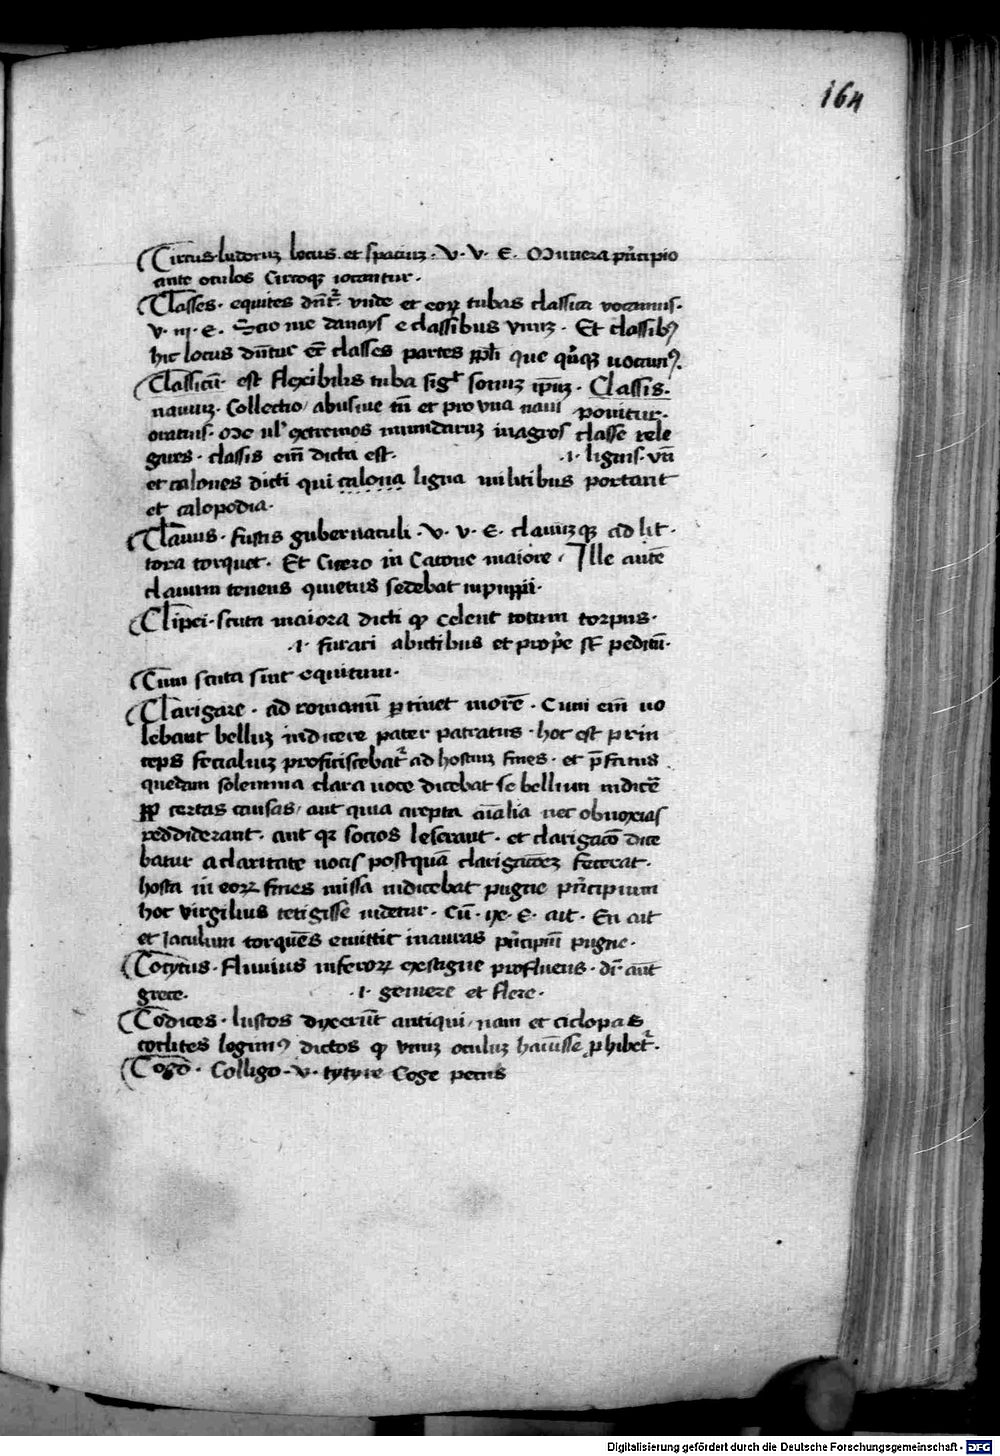 164
Circus ludorum locus et spacium · v · v · E · Munera principio
ante oculos Circoque locantur ·
Classes · equites dnt̄ · vnde et eoꝝ tubas classica vocamus ·
v · iii · E · Scio me danays e classibus vnuꝫ · Et classibꝰ
hic locus dn̄tur et̄ classes partes ppl̄i que quīqꝫ uocant᷑ ·
Classicū · est flexibilis tuba sigᷓ sonuꝫ ipsiꝫ · Classis ·
nauiuꝫ · Collectio / abusiue tn̄ et pro vna naui ponitur ·
oratius · Me ul' extremos numidaruꝫ in agros classe rele
gues · classis em̄ dicta est · · i · lignis · vn̄
et calones dicti qui calona ligna militibus portant
et calopodia ·
Clauus · fustis gubernaculi · v · v · E · clauuꝫqꝫ ad lit ·
tora torquet · Et Cicero in Catone maiore · Ille autē
clauum tenens quietus sedebat in puppi ·
Clipei · scuta maiora dicti qꝫ celent totum corpus ·
· i · furari abictibus et prop̄e st̄ peditū ·
Cum scuta sint equitum ·
Clarigare · ad romanū ꝑtinet morē · Cum em̄ uo
lebant belluꝫ indicere pater patratus · hoc est prin
ceps fecialiuꝫ proficiscebat᷑ ad hostiuꝫ fines · et p̄fatus
quedam solemnia clara uoce dicebat se bellum indicē
ꝓꝑ certas causas / aut quia arepta aīalia nec obnoxias
reddiderant · aut qꝛ socios leserant · et clarigaco̅ dice
batur a claritate uocis postquā clarigacōeꝫ fecerat ·
hasta in eoꝝ fines missa indicebat pugne principium
hoc virgilius tetigisse uidetur · Cū · ix · E · ait · En ait
et Iaculum torquēs emittit in auras principiū pugne ·
Cocytus · fluuius inferoꝝ ex stigne profluens · dr̄ aut̄
grece · · i · gemere et flere ·
Codices · luscos dixerūt antiqui / nam et ciclopas
coclites legimꝰ dictos qꝫ vnuꝫ oculuꝫ habuisse ꝓhibet᷑ ·
Cogo · Colligo · v · tytyre Coge pecus
Digitalisierung gefördert durch die Deutsche Forschungsgemeinschaft - DFG